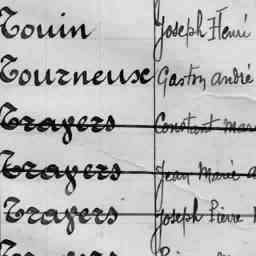 Touin Joseph Henri
Tourneux Gaston André
Trayers Constant
Trayers Jean Marie
Trayers Joseph Pierre